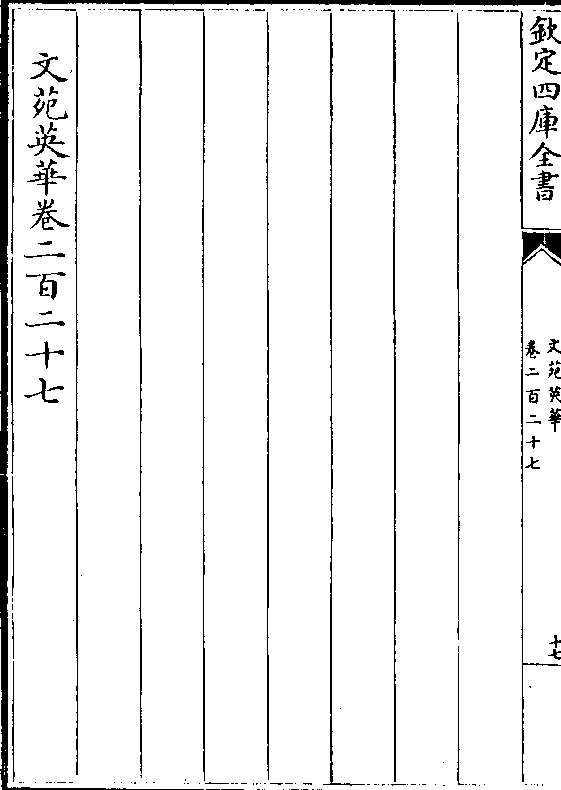 欽定四庫全書
文苑英華
卷二百二十七
十七
文苑英華卷二百二十七